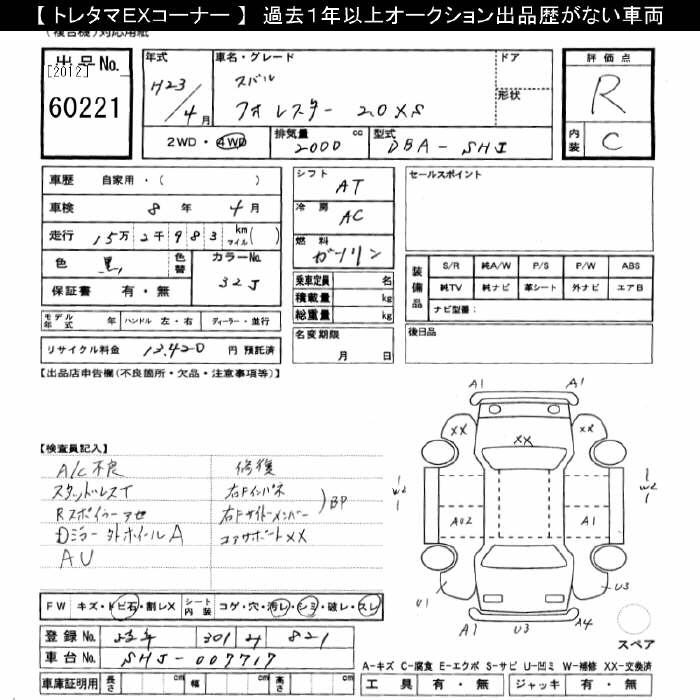 【トレタマEXコーナー】 過去1年以上オークション出品歴がない車両
(複合機)対応用紙
出品No. [2012] 60221
年式 H23/4月
車名・グレード スバル フォレスター 2.0XS
ドア 形状
2WD・4WD 排気量 2000 cc 型式 DBA-SH5
評価点 R
内装 C
車歴 自家用・( )
車検 8年 4月
走行 15万2千983 km マイル( )
色 黒 色替 カラーNo. 32J
保証書 有・無
モデル年式 年 ハンドル 左・右 ディーラー・並行
リサイクル料金 12,420 円 預託済
シフト AT
冷房 AC
燃料 ガソリン
乗車定員 名
積載量 kg
総重量 kg
名変期限 月 日
セールスポイント
装備品 S/R 純A/W P/S P/W ABS
純TV 純ナビ 革シート 外ナビ エアB
ナビ型番:
後日品
【出品店申告欄(不良箇所・欠品・注意事項等)】
【検査員記入】
A/C不良
スタッドレスT
Rスポイラーアセ
Dミラー 外ホイールA
AU
修復
右Fインパネ
右Fサイドメンバー
コアサポートXX
)BP
A1 A1
XX XX
XX
W2 W2
AU2 A1
U1 U3
A1 U3 A4
スペア
FW キズ・トビ石・割レX シート内装 コゲ・穴・汚レ・シミ・破レ・スレ
登録No. 301 821
車台No. SH5-007717
車庫証明用 長さ cm 幅 cm 高さ cm
A-キズ C-腐食 E-エクボ S-サビ U-凹ミ W-補修 XX-交換済
工具 有・無 ジャッキ 有・無